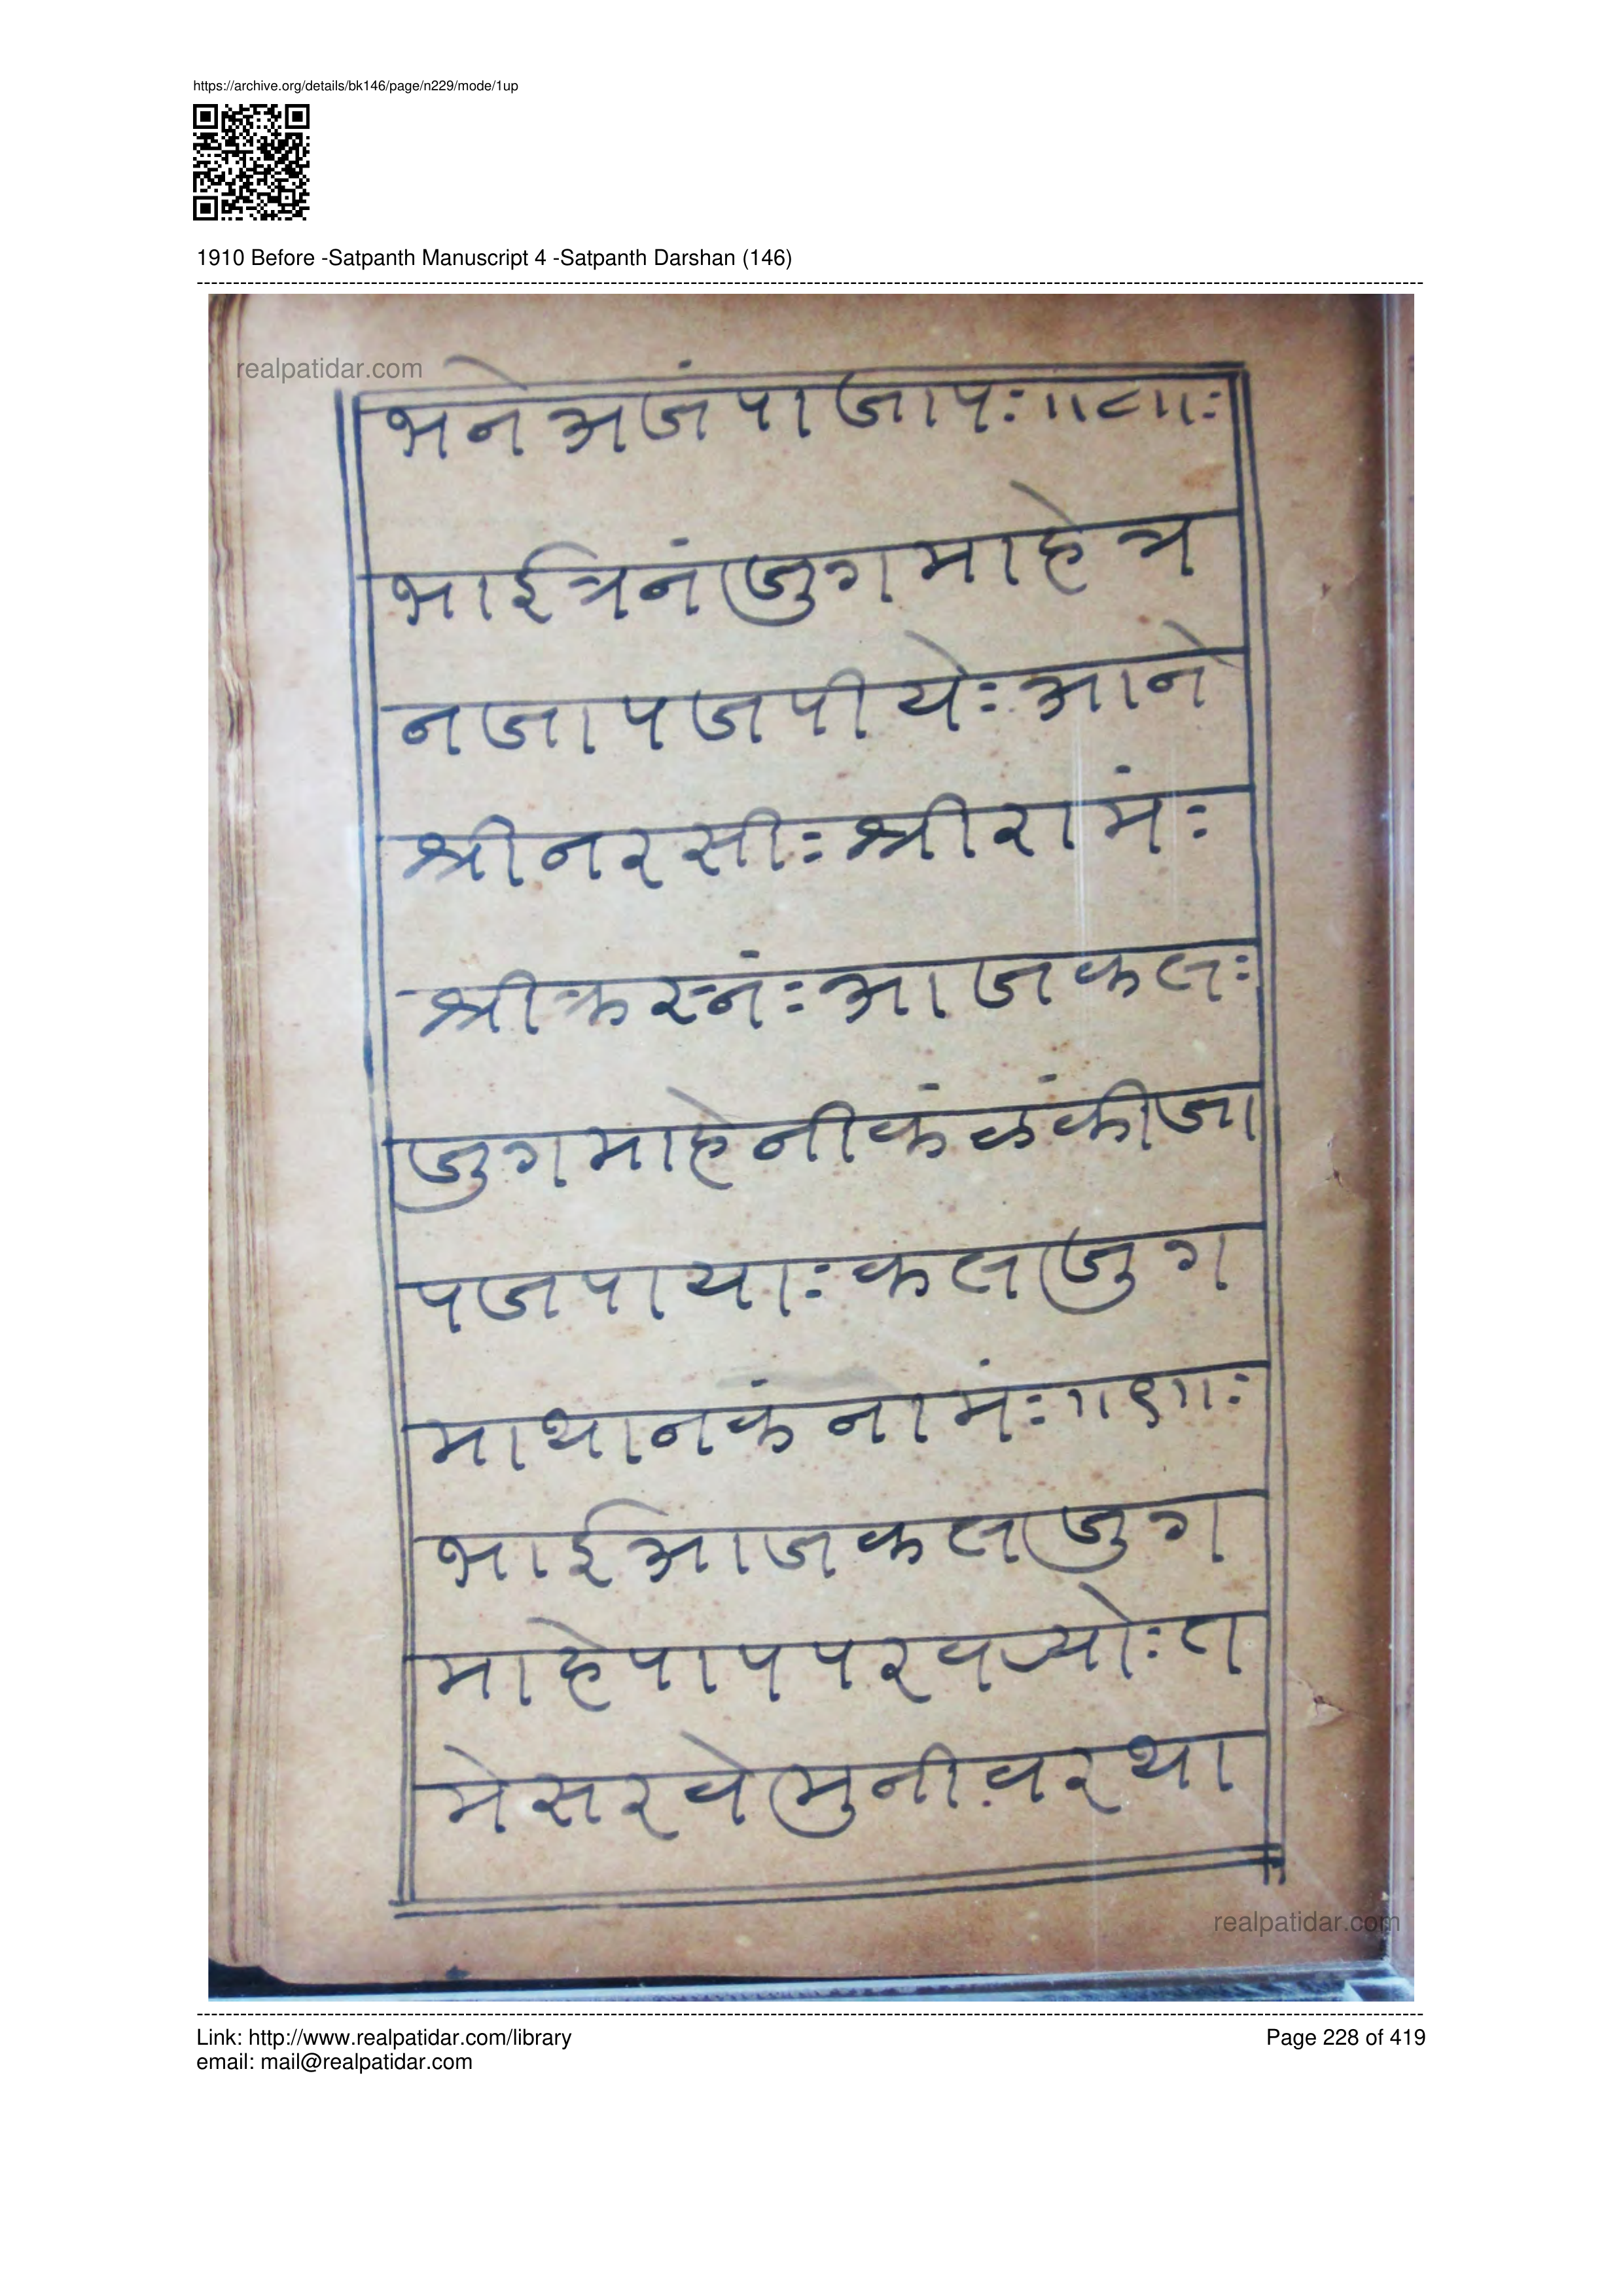 https://archive.org/details/bk146/page/n229/mode/1up
1910 Before -Satpanth Manuscript 4 -Satpanth Darshan (146)
realpatidar.com
भनेअजंपाजापः॥८॥ः
भाईत्रनंजुगमाहेत्र
नजापजपीयेःआने
श्रीनरसीःश्रीरामंः
श्रीक्रस्नंःआजकलः
जुगमाहेनीकंळंकीजा
पजपायाःकलजुग
माथानकंनामंः॥९॥ः
भाईआजकलजुग
माहेपापपरवर्‍योःत
मेसरवेमुनीव़रथा
realpatidar.com
Link: http://www.realpatidar.com/library
Page 228 of 419
email: mail@realpatidar.com